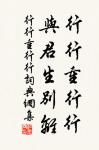 行行重行行
與君生別離
行行重行行詞典網集